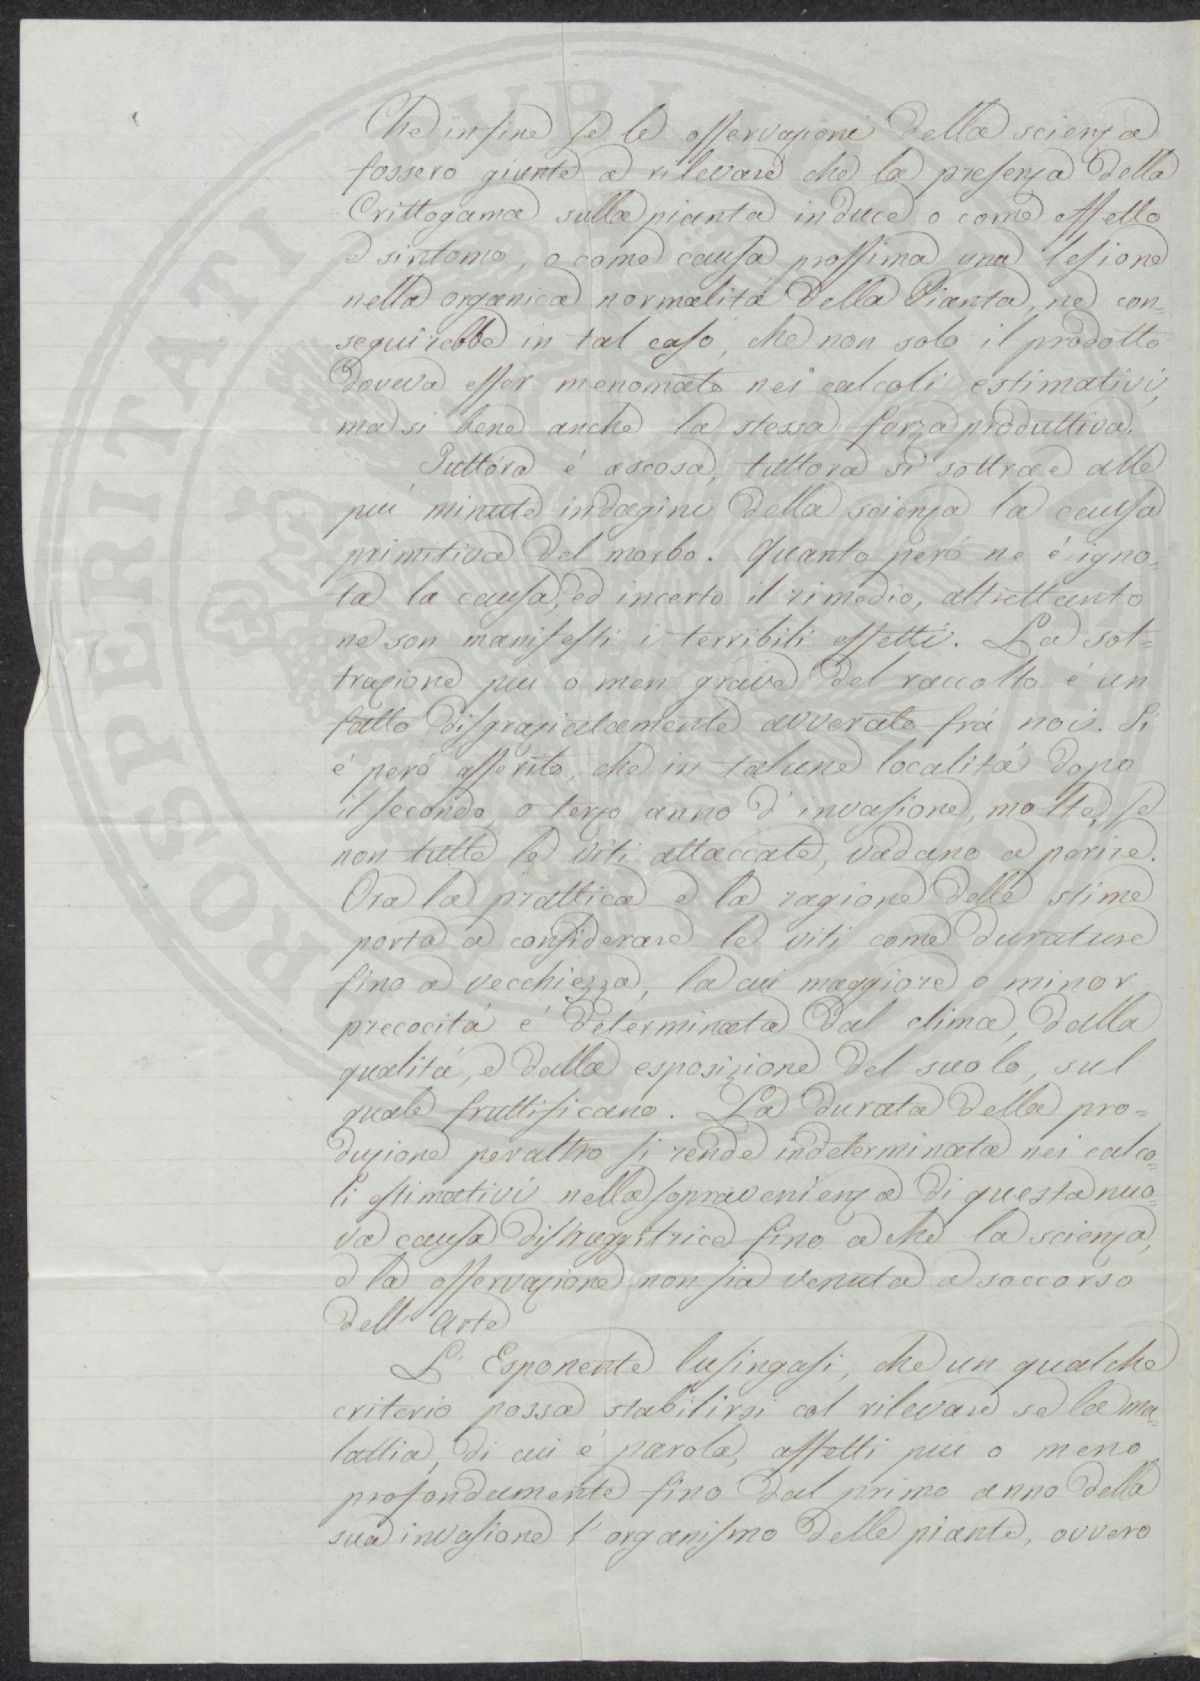 Che infine se le osservazioni della scienza
fossero giunte a rilevare che la presenza della
Crittogama sulla pianta induce o come effetto
e sintomo, o come causa prossima una lesione
nella organica normalità della Pianta, ne con=
seguirebbe in tal caso, che non solo il prodotto
doveva esser menomato nei calcoli estimativi,
ma si bene anche la stessa forza produttiva.
Tuttora è ascosa, tuttora si sottrae alle
più minute indagini della scienza la causa
primitiva del morbo. Quanto però ne è igno=
ta la causa, ed incerto il rimedio, altrettanto
ne son manifesti i terribili effetti. La sot=
trazione più o men grave del raccolto è un
fatto disgraziatamente avverato frà noi. Si
è però asserito, che in talune località dopo
il secondo, o terzo anno d'invasione, molte, se
non tutte le viti attaccate, vadano a perire.
Ora la prattica e la ragione delle stime
porta a considerare le viti come durature
fino a vecchiezza, la cui maggiore o minor
precocità è determinata dal clima, dalla
qualità, e dalla esposizione del suolo, sul
quale fruttificano. La durata della pro=
duzione peraltro si rende indeterminata nei calco=
li estimativi nella sopravenienza di questa nuo=
va causa distruggitrice fino a che la scienza,
e la osservazione non sia venuta a soccorso
dell'Arte
L'Esponente lusingasi, che un qualche
criterio possa stabilirsi col rilevare se la ma=
lattia, di cui è parola, affetti più o meno
profondamente fino dal primo anno della
sua invasione l'organismo delle piante, ovvero
PROSPERITATI PUBLICAE